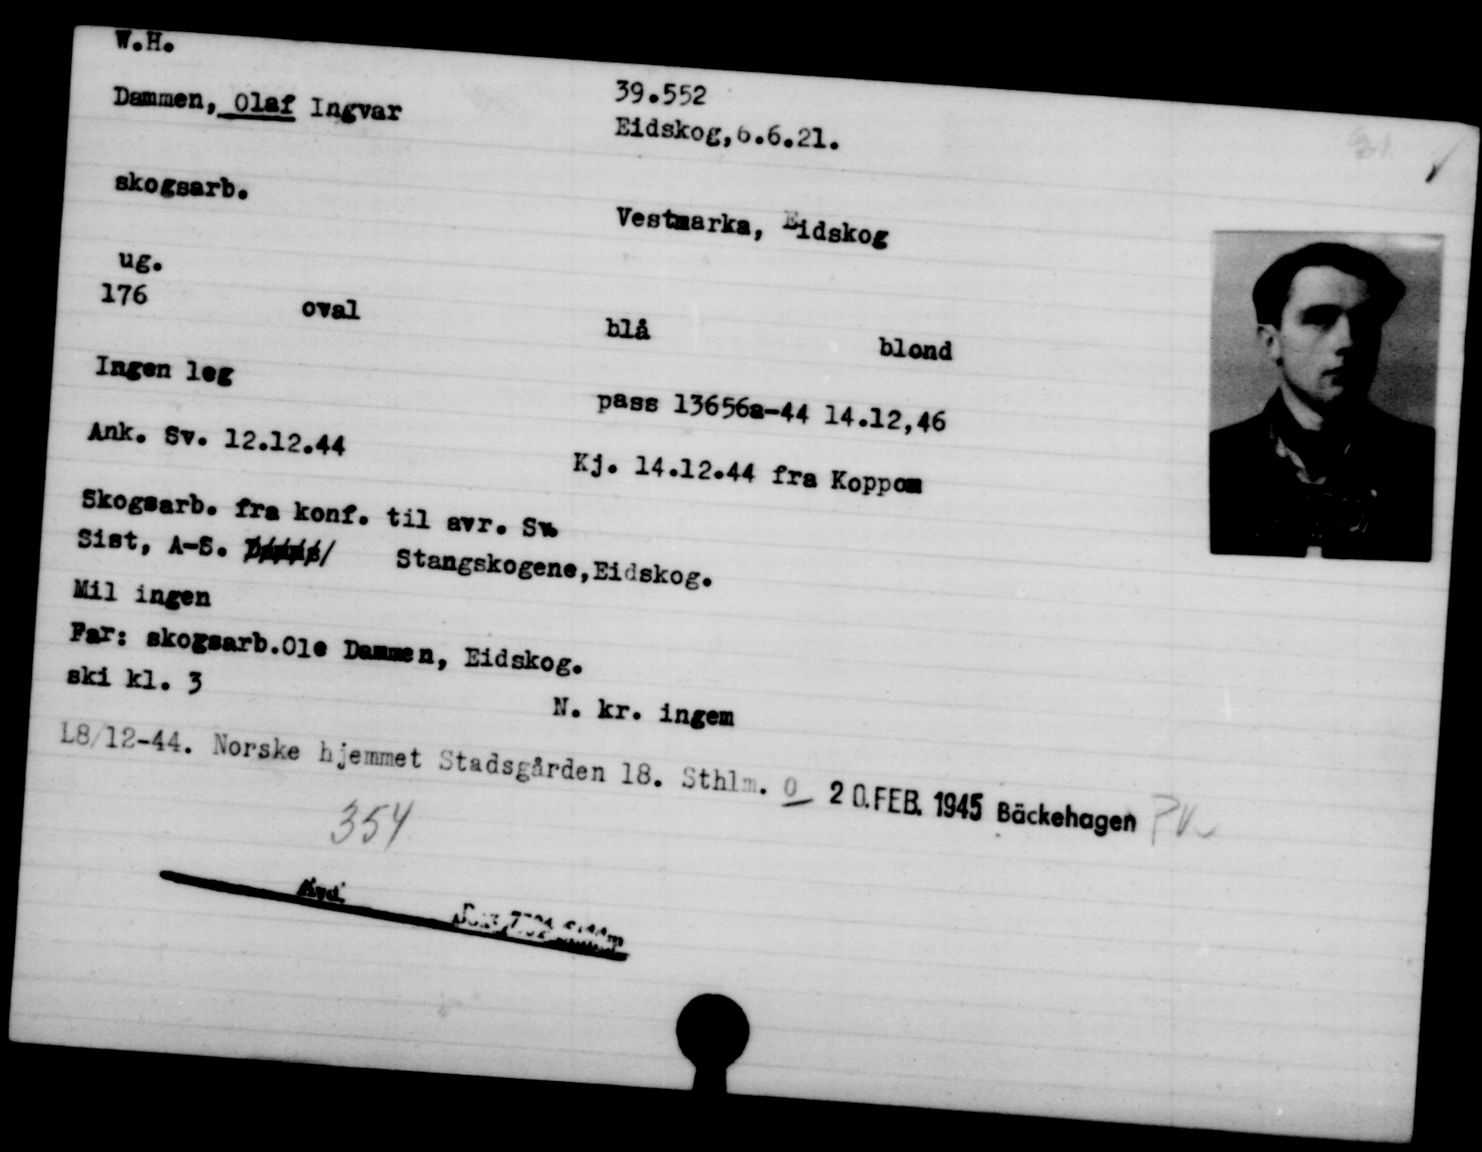 W.H.
Dammen, Olaf Ingvar 39.552
Eidskog,6.6.21.
skogsarb. Vestmarka, Eidskog
ug.
176 oval blå blond
Ingen leg pass 13656a-44 14.12,46
Ank. Sv. 12.12.44 Kj. 14.12.44 fra Koppom
Skogsarb. fra konf. til avr. Sv.
Sist, A-S. Stangskogene,Eidskog.
Mil ingen
Far: skogsarb.Ole Dammen, Eidskog.
ski kl. 3 N. kr. ingem
L8/12-44. Norske hjemmet Stadsgården 18. Sthlm. O 20.FEB. 1945 Bäckehagen
354